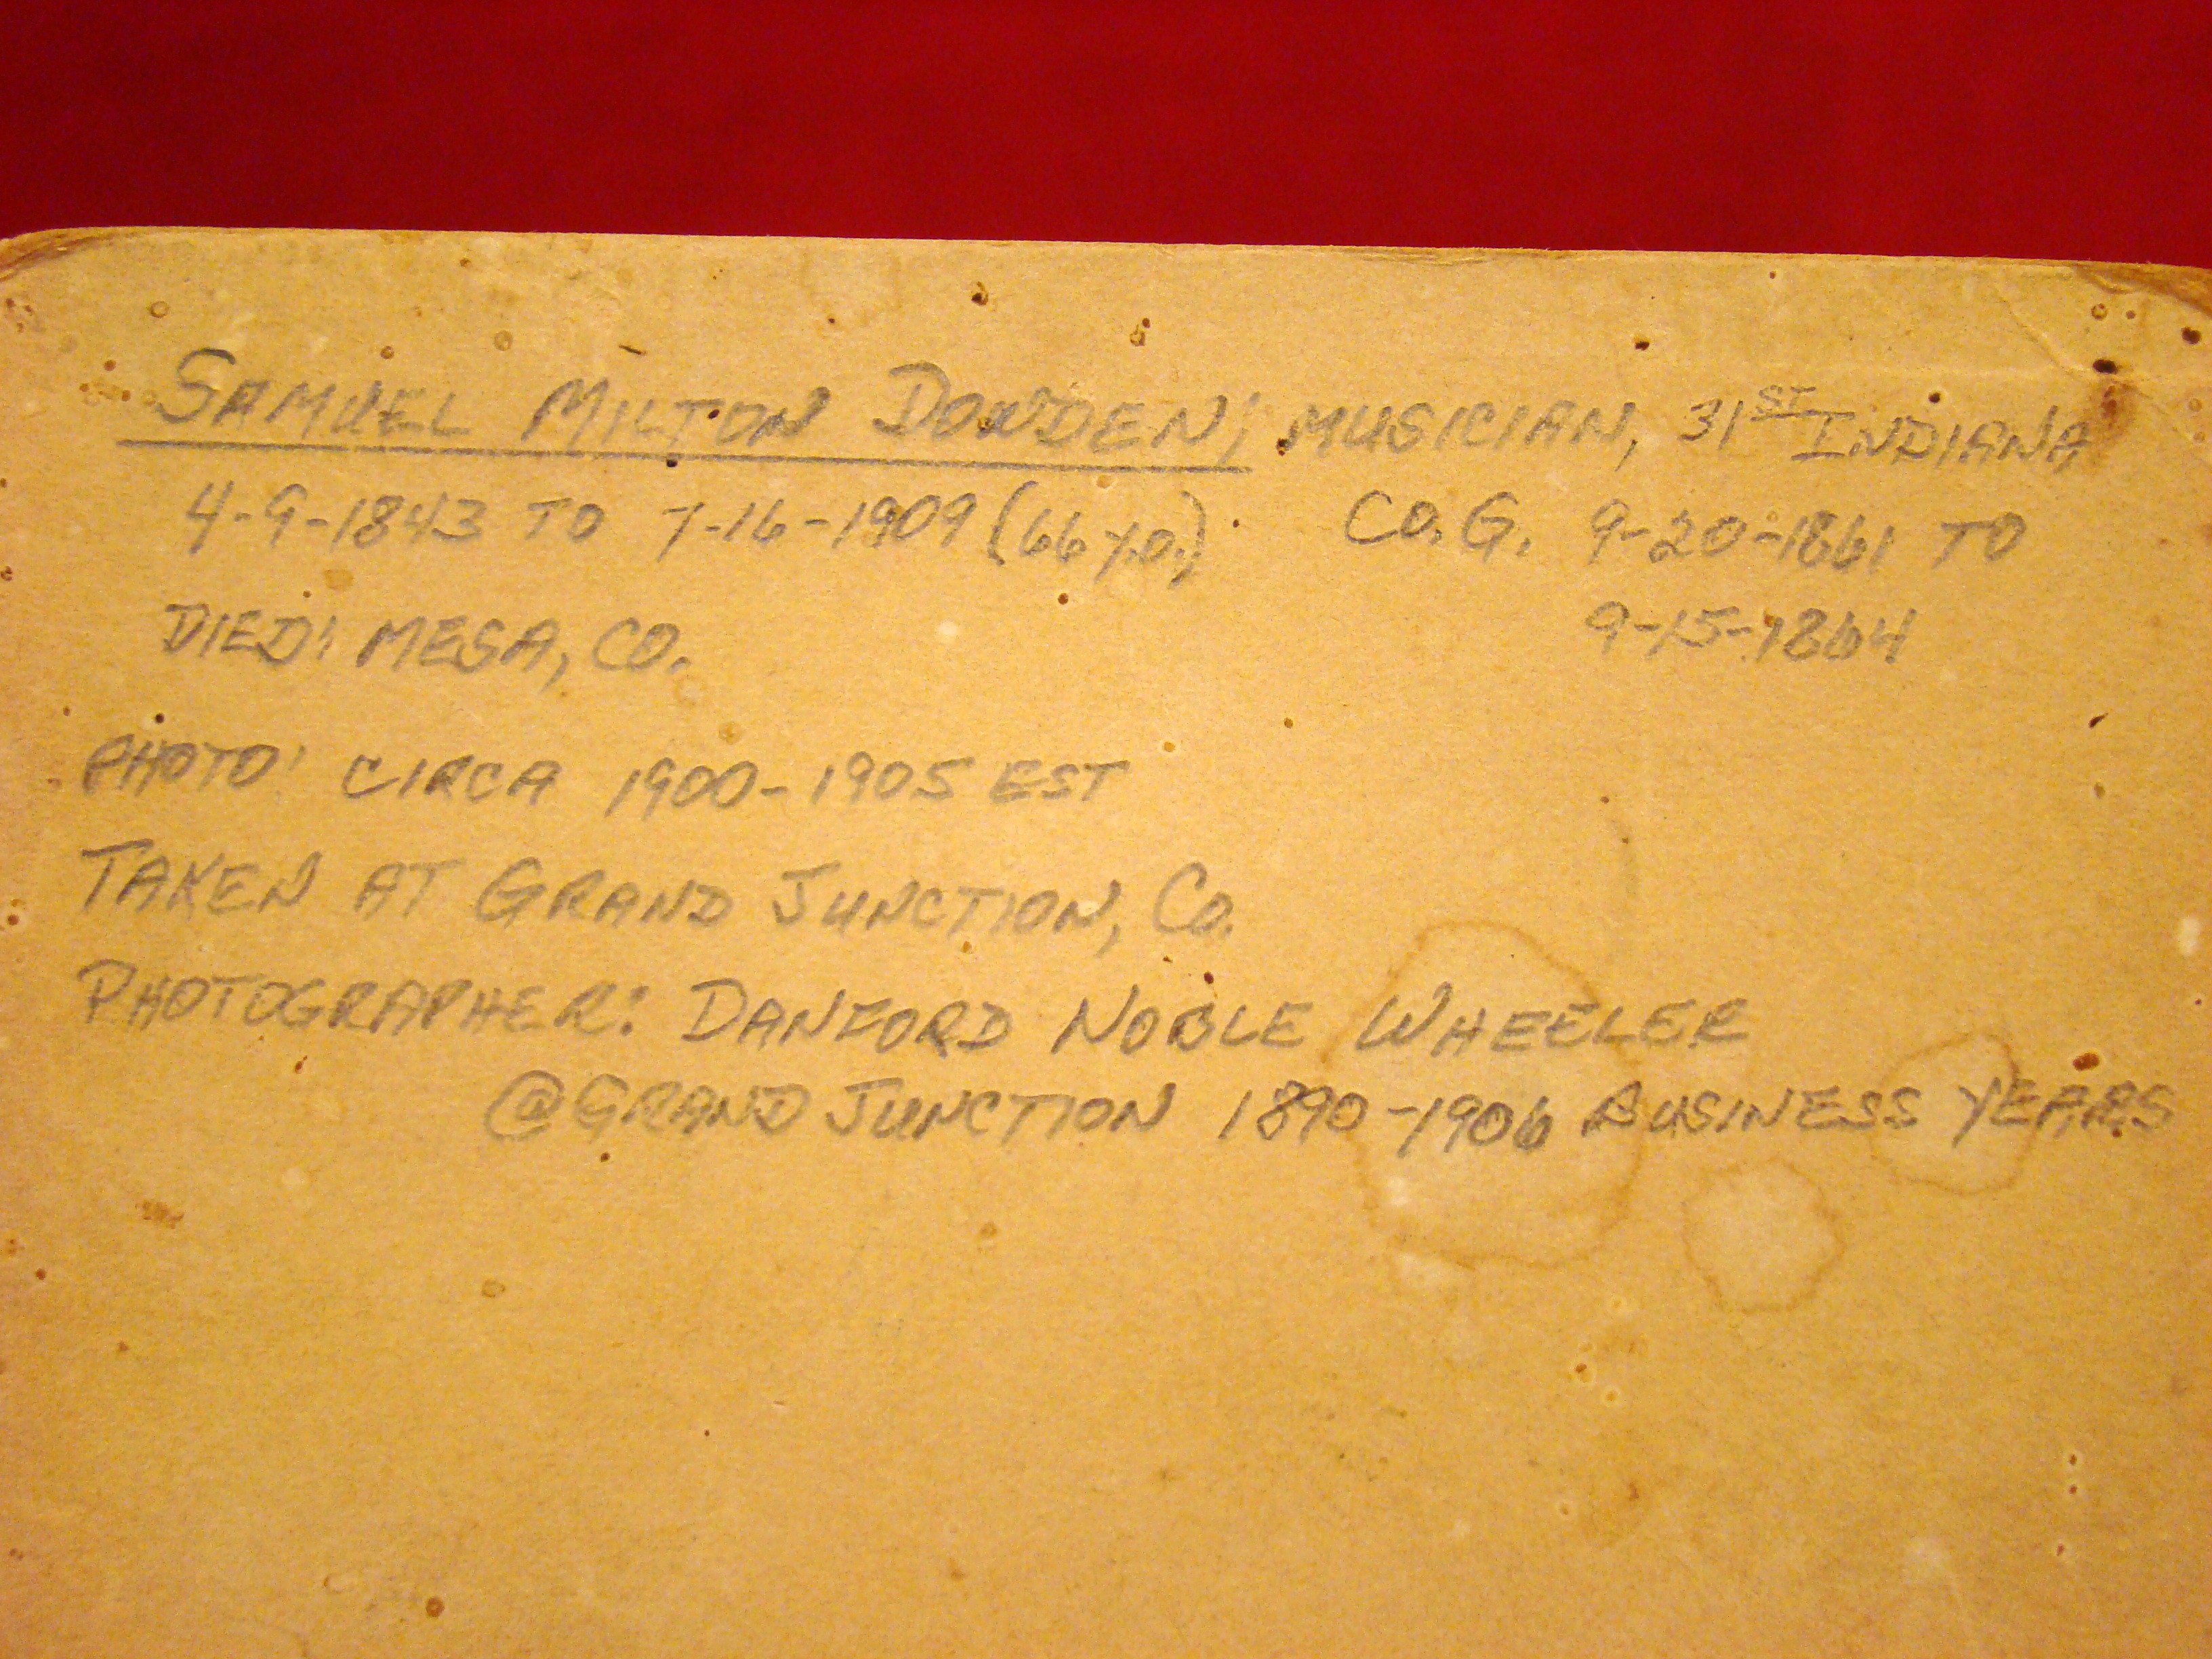 SAMUEL MILTON DOWDEN; MUSICIAN, 31ST INDIANA
4-9-1843 TO 7-16-1909 (66 y.o.) CO. G. 9-20-1861 TO
DIED: MESA, CO. 9-15-1864
PHOTO: CIRCA 1900-1905 EST
TAKEN AT GRAND JUNCTION, CO.
PHOTOGRAPHER: DANFORD NOBLE WHEELER
@ GRAND JUNCTION 1890-1906 BUSINESS YEARS